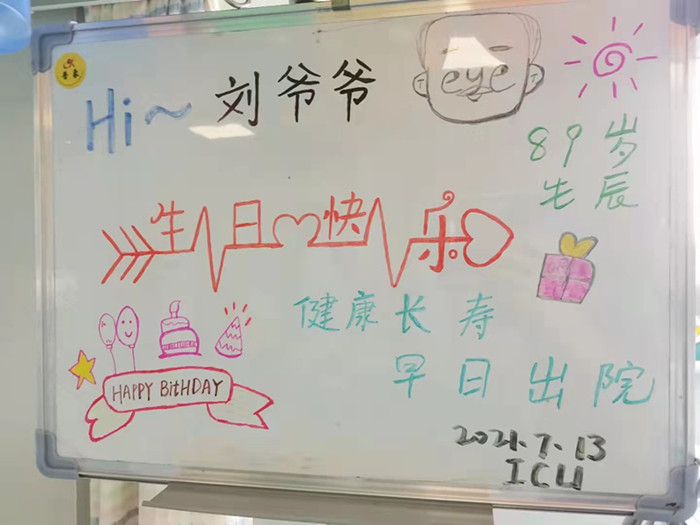 Hi~ 刘爷爷
eye
89岁
生辰
生日快乐
健康长寿
早日出院
HAPPY BitHDAY
2021.7.13
ICU